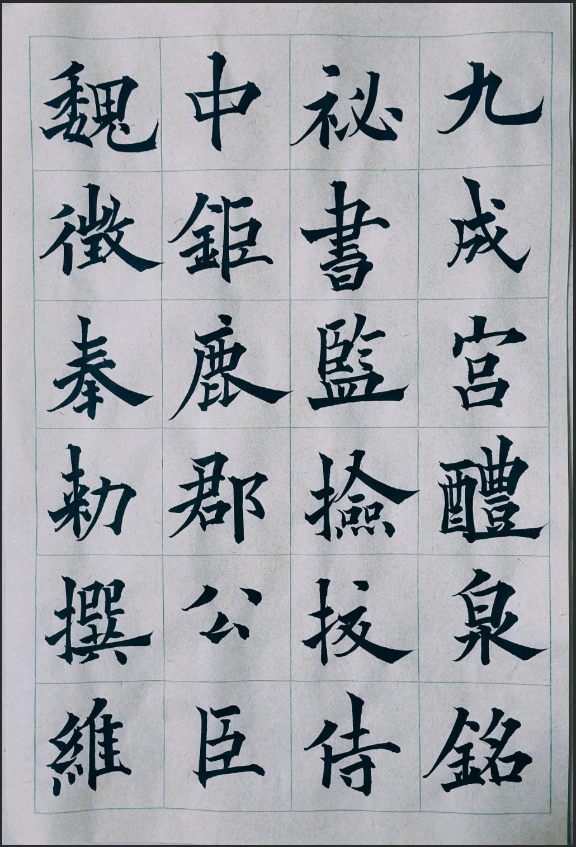 九成宮醴泉銘
祕書監撿挍侍
中鉅鹿郡公臣
魏徵奉勑撰維